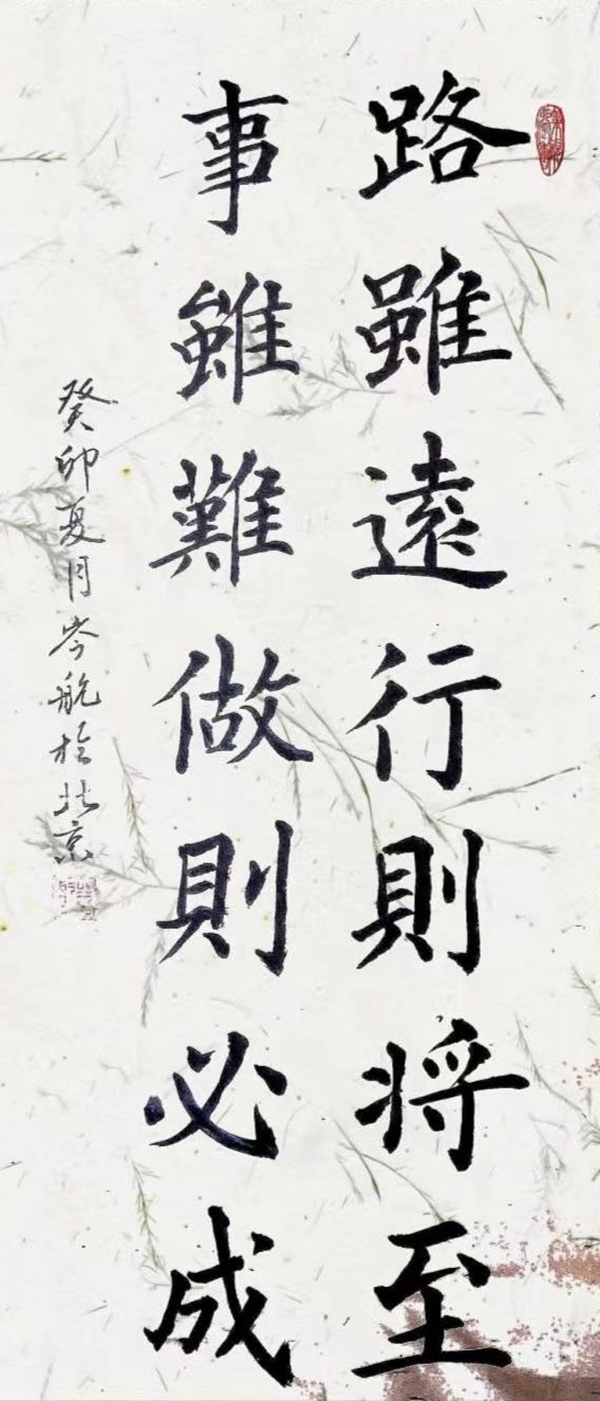 路雖遠行則将至
事雖難做則必成
癸卯夏月岑航於北京